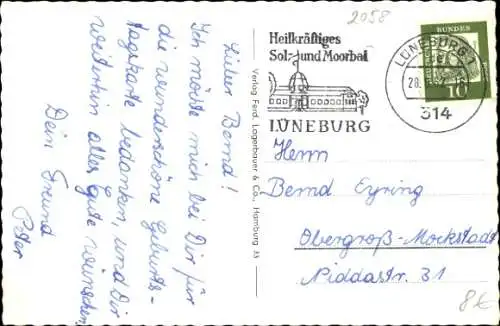 2058
Heilkräftiges
Sol- und Moorbad
LÜNEBURG
LÜNEBURG 1
28.
314
BUNDES
10
Lieber Bernd!
Ich möchte mich bei Dir für
die wunderschöne Geburts-
tagskarte bedanken, und Dir
weiterhin alles gute wünschen
Dein Freund
Peter
Verlag Ferd. Lagerbauer & Co., Hamburg
Herrn
Bernd Eyring
Obergroß-Mockstadt
Niddastr. 31
8€